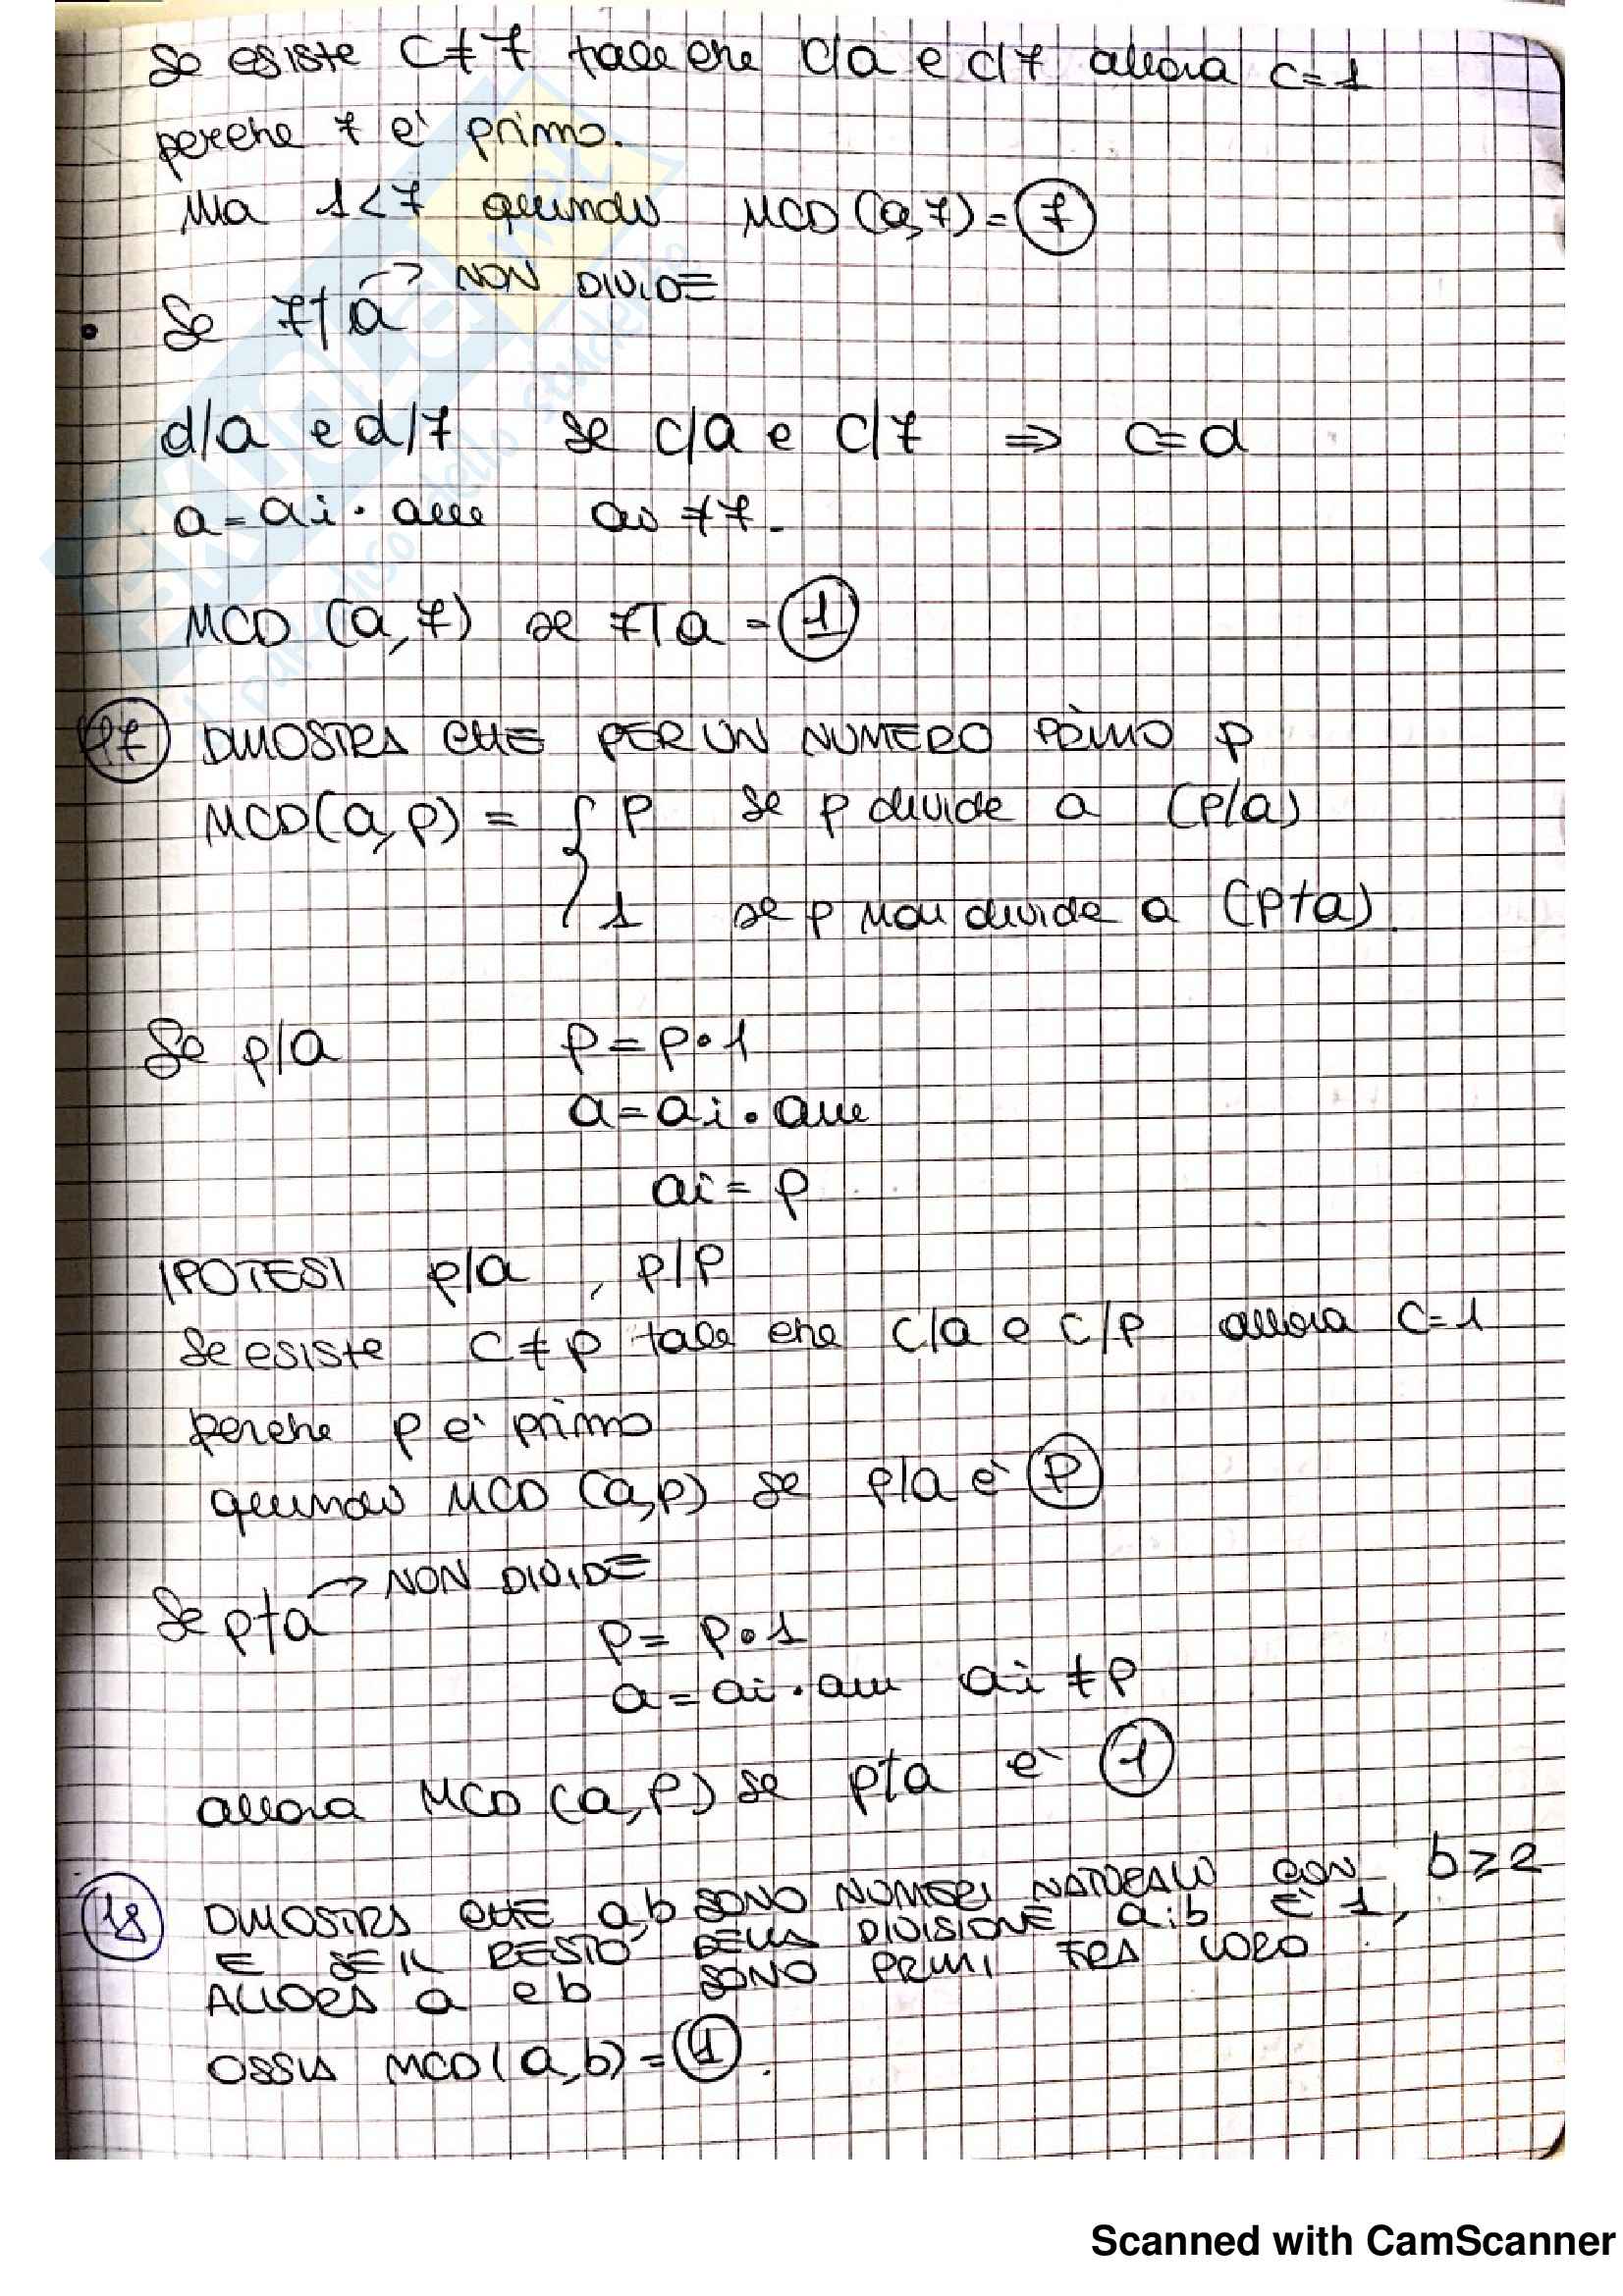 Se esiste c≠7 tale che c/a e c/7 allora c=1
perche 7 e' primo.
Ma 1<7 quindi MCD(a,7)=7
Se 7∤a → NON DIVIDE
d/a e d/7 se c/a e c/7 ⇒ c=d
a=ai·am ai≠7.
MCD (a,7) se 7∤a = 1
17 DIMOSTRA CHE PER UN NUMERO PRIMO p
MCD(a,p) = { p se p divide a (p/a)
1 se p non divide a (p∤a).
Se p/a p=p·1
a=ai·am
ai=p
IPOTESI p/a, p/p
Se esiste c≠p tale che c/a e c/p allora c=1
perche p e' primo
quindi MCD (a,p) se p/a e' p
Se p∤a → NON DIVIDE
p= p·1
a=ai·am ai≠p
allora MCD (a,p) se p∤a e' 1
18 DIMOSTRA CHE a,b SONO NUMERI NATURALI CON b≥2
E SE IL RESTO DELLA DIVISIONE a:b E' 1,
ALLORA a e b SONO PRIMI FRA LORO
OSSIA MCD(a,b)=1.
SKUOLA.net
il paradiso dello studente
Scanned with CamScanner